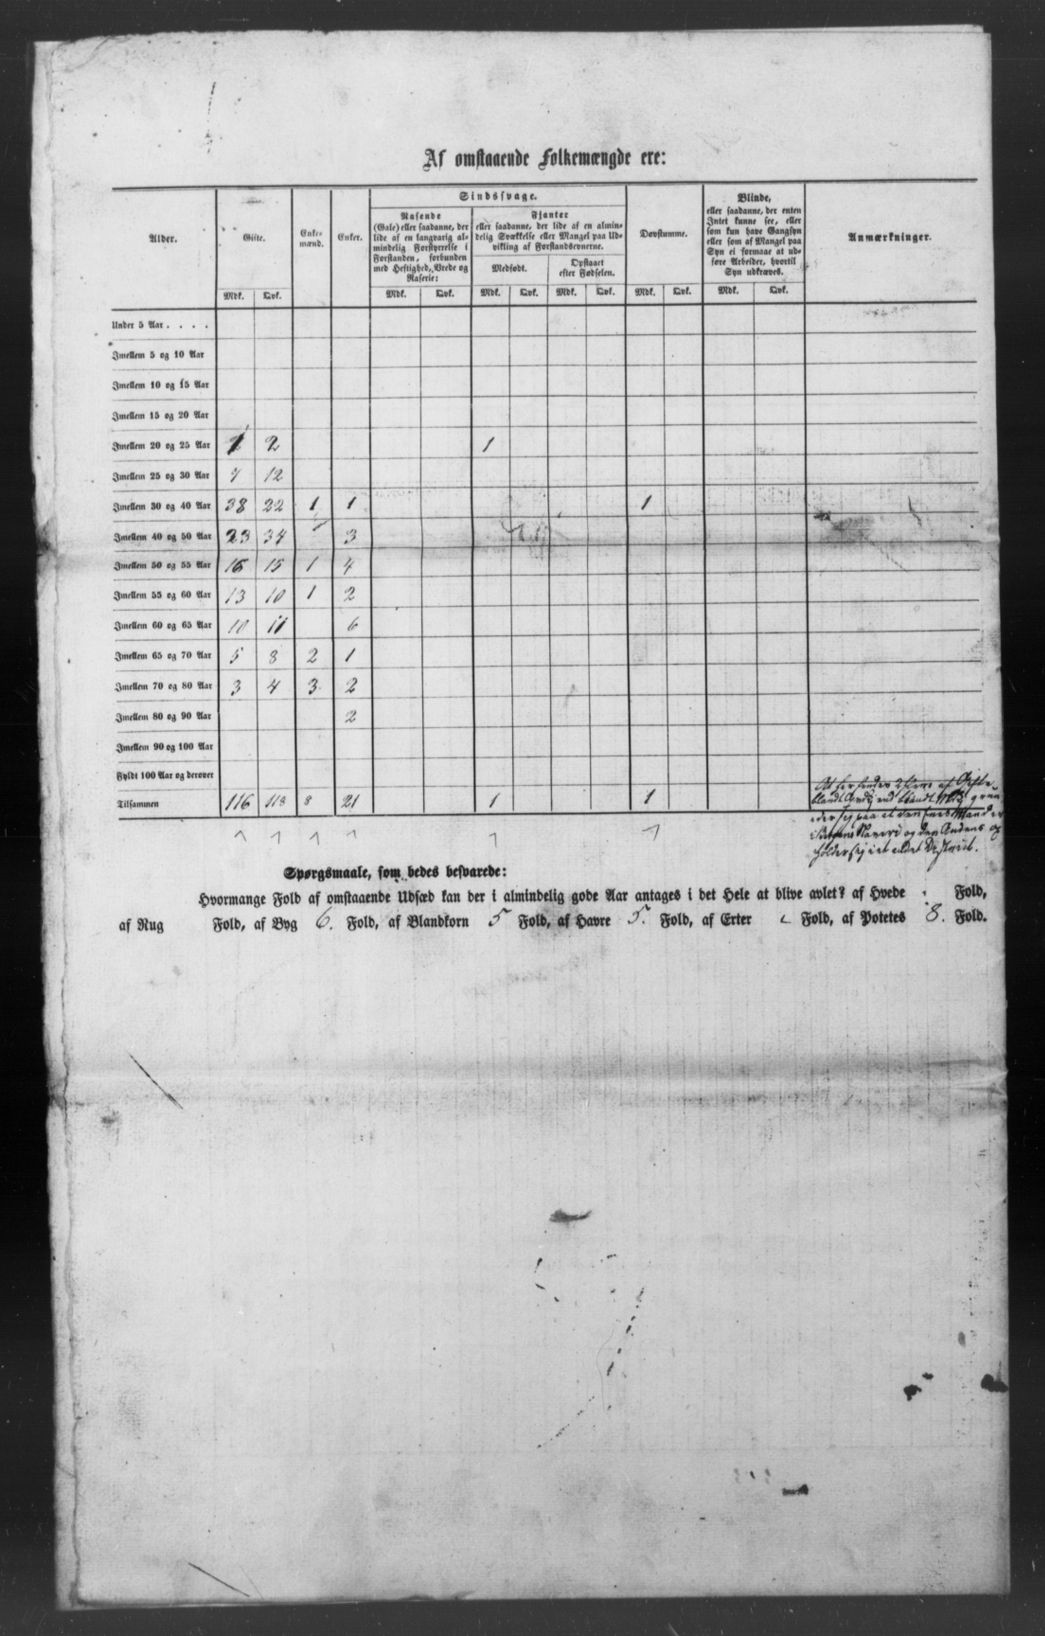 Af omstaaende Folkemængde ere:
Alder.
Gifte.
Mdk. Qvk.
Enke-
mænd.
Enker.
Sindssvage.
Rasende
(Gale) eller saadanne, der
lide af en langvarig al-
mindelig Forstyrrelse i
Forstanden, forbunden
med Heftighed, Vrede og
Raseri:
Mdk. Qvk.
Fjanter
eller saadanne, der lide af en almin-
delig Svækkelse eller Mangel paa Ud-
vikling af Forstandsevnerne.
Medfødt.
Mdk. Qvk.
Opstaaet
efter Fødselen.
Mdk. Qvk.
Døvstumme.
Mdk. Qvk.
Blinde,
eller saadanne, der enten
Intet kunne see, eller
som kun have Gangsyn
eller som af Mangel paa
Syn ei formaae at ud-
føre Arbeider, hvortil
Syn udkræves.
Mdk. Qvk.
Anmærkninger.
Under 5 Aar . . . .
Imellem 5 og 10 Aar
Imellem 10 og 15 Aar
Imellem 15 og 20 Aar
Imellem 20 og 25 Aar 1 2 1
Imellem 25 og 30 Aar 7 12
Imellem 30 og 40 Aar 38 22 1 1 1
Imellem 40 og 50 Aar 23 34 3
Imellem 50 og 55 Aar 16 15 1 4
Imellem 55 og 60 Aar 13 10 1 2
Imellem 60 og 65 Aar 10 11 6
Imellem 65 og 70 Aar 5 8 2 1
Imellem 70 og 80 Aar 3 4 3 2
Imellem 80 og 90 Aar 2
Imellem 90 og 100 Aar
Fyldt 100 Aar og derover
Tilsammen 116 118 8 21 1 1
At her findes 2 flere af Gifte
blandt Qvdk. end blandt Mdk. grun
der sig paa at den Eenes Mand er
og den Andens op
holder sig i et andet District.
Spørgsmaale, som bedes besvarede:
Hvormange Fold af omstaaende Udsæd kan der i almindelig gode Aar antages i det Hele at blive avlet? af Hvede Fold,
af Rug Fold, af Byg 6. Fold, af Blandkorn 5 Fold, af Havre 5. Fold, af Erter Fold, af Potetes 8. Fold.